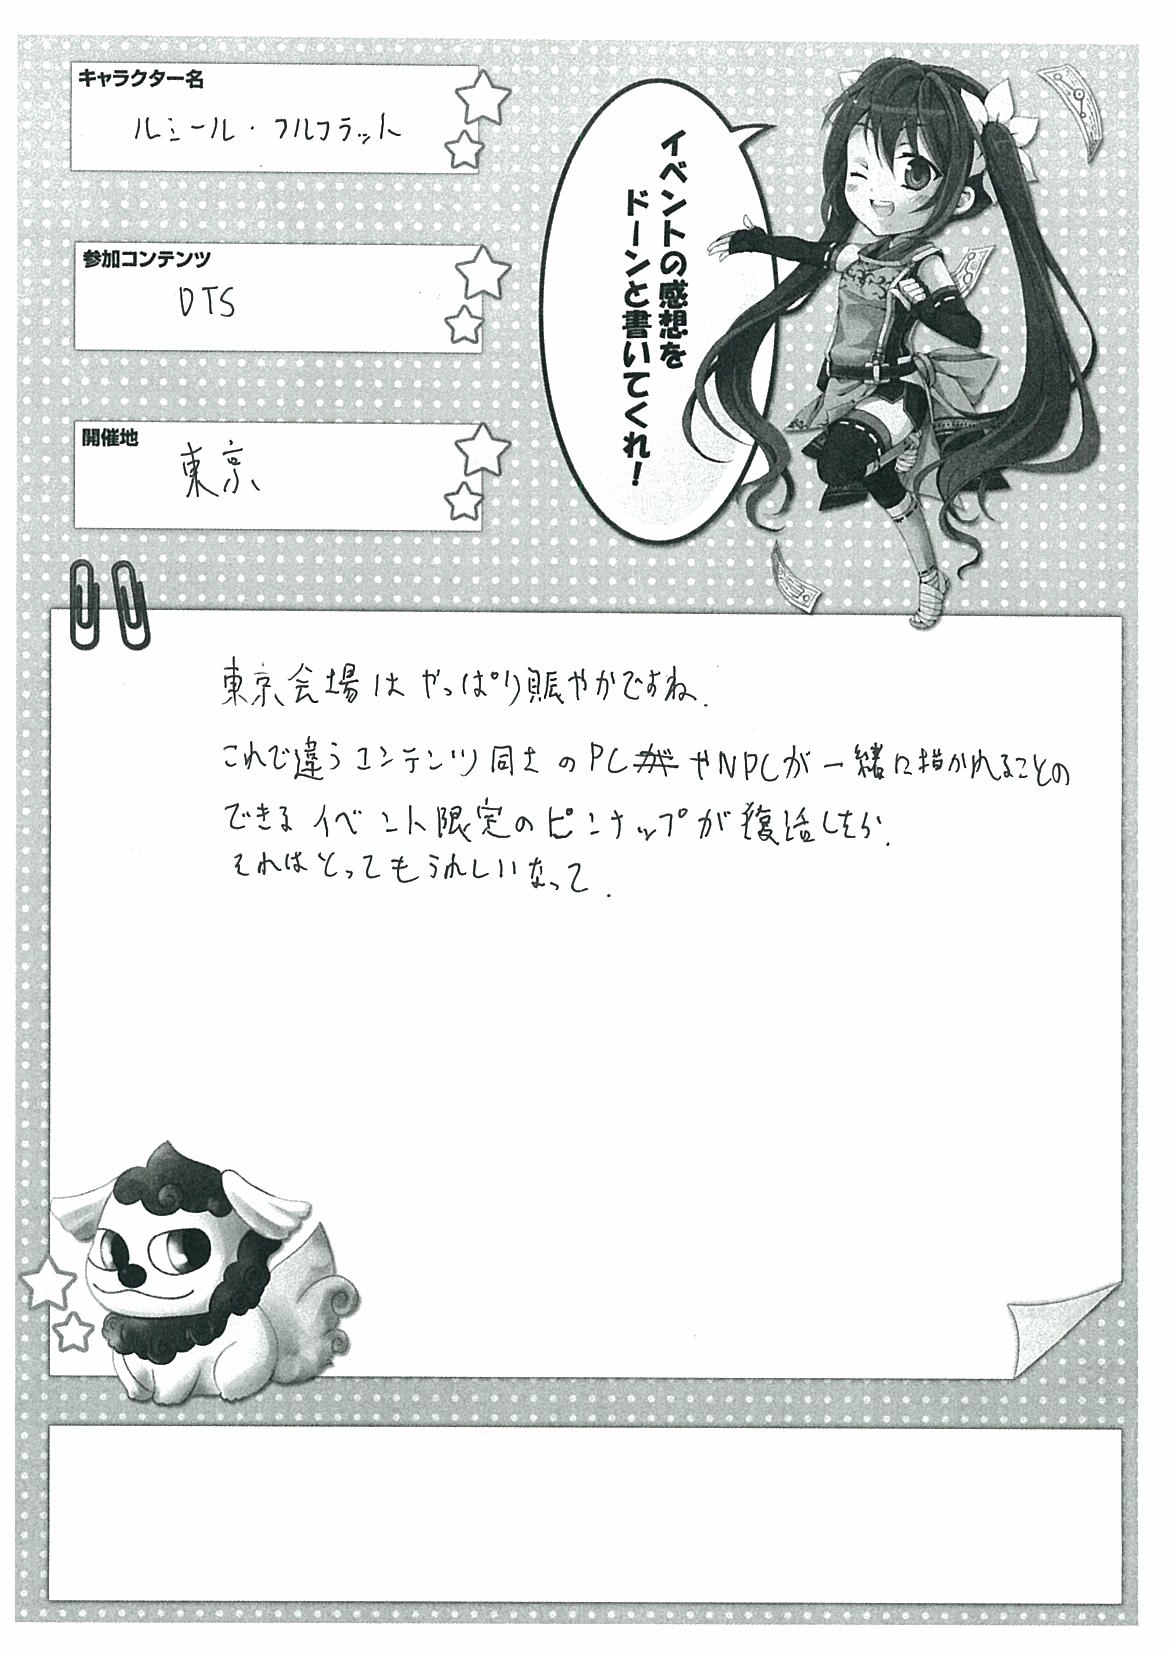 キャラクター名
ルシール・フルフラット
参加コンテンツ
DTS
開催地
東京
イベントの感想を
ドーンと書いてくれ！
東京会場はやっぱり賑やかですね.
これで違うコンテンツ同士のPCがやNPCが一緒に描かれることの
できるイベント限定のピンナップが復活したら.
それはとってもうれしいなって.